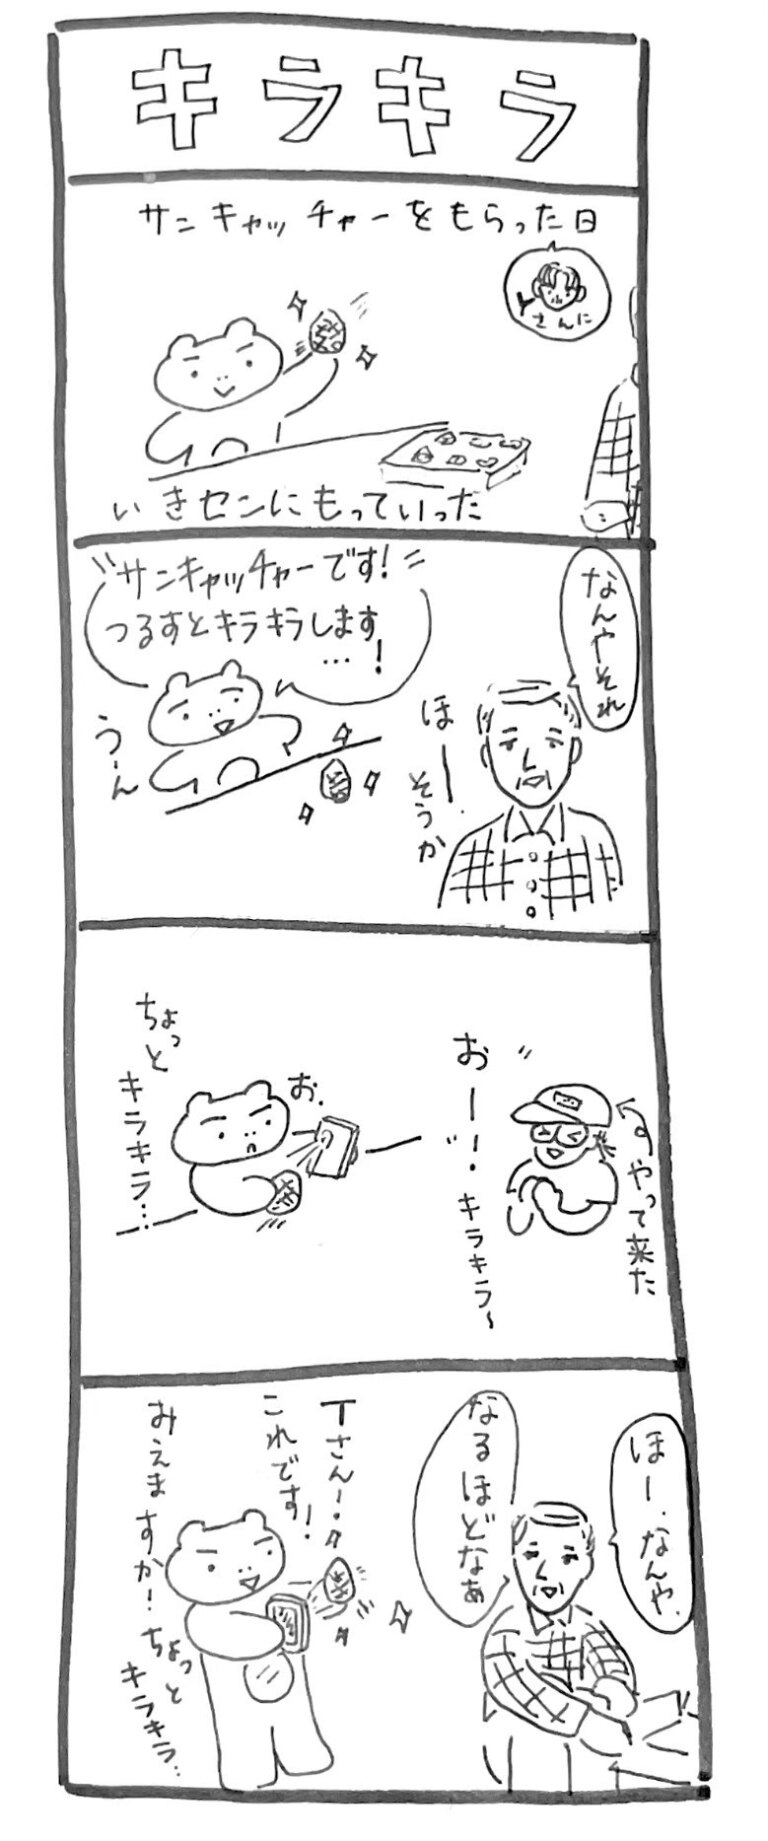 キラキラ
サンキャッチャーをもらった日
Yさんに
いきセンにもっていった
なんやそれ
サンキャッチャーです!
つるすとキラキラします
…!
うーん
ほー
そうか
やって来た
おー!!
キラキラ〜
お、
ちょっと
キラキラ…
ほー、なんや、
なるほどなぁ
Tさんー!
これです!
みえますか!
ちょっと
キラキラ…